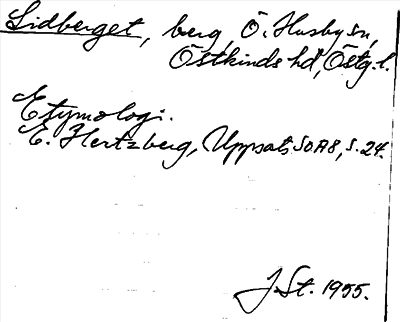 Lidberget, berg, Ö. Husby sn,
Östkinds hd, Östg.l.
Etymologi.
E. Hertzberg, Uppsats SOA8, s. 24.
J. St. 1955.